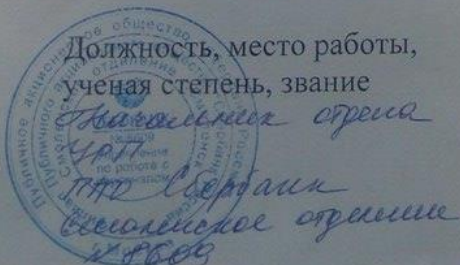 Должность, место работы,
ученая степень, звание
Начальник отдела
УРП
ПАО Сбербанк
Смоленское отделение
№8609
Публичное акционерное общество
отделение
по работе с